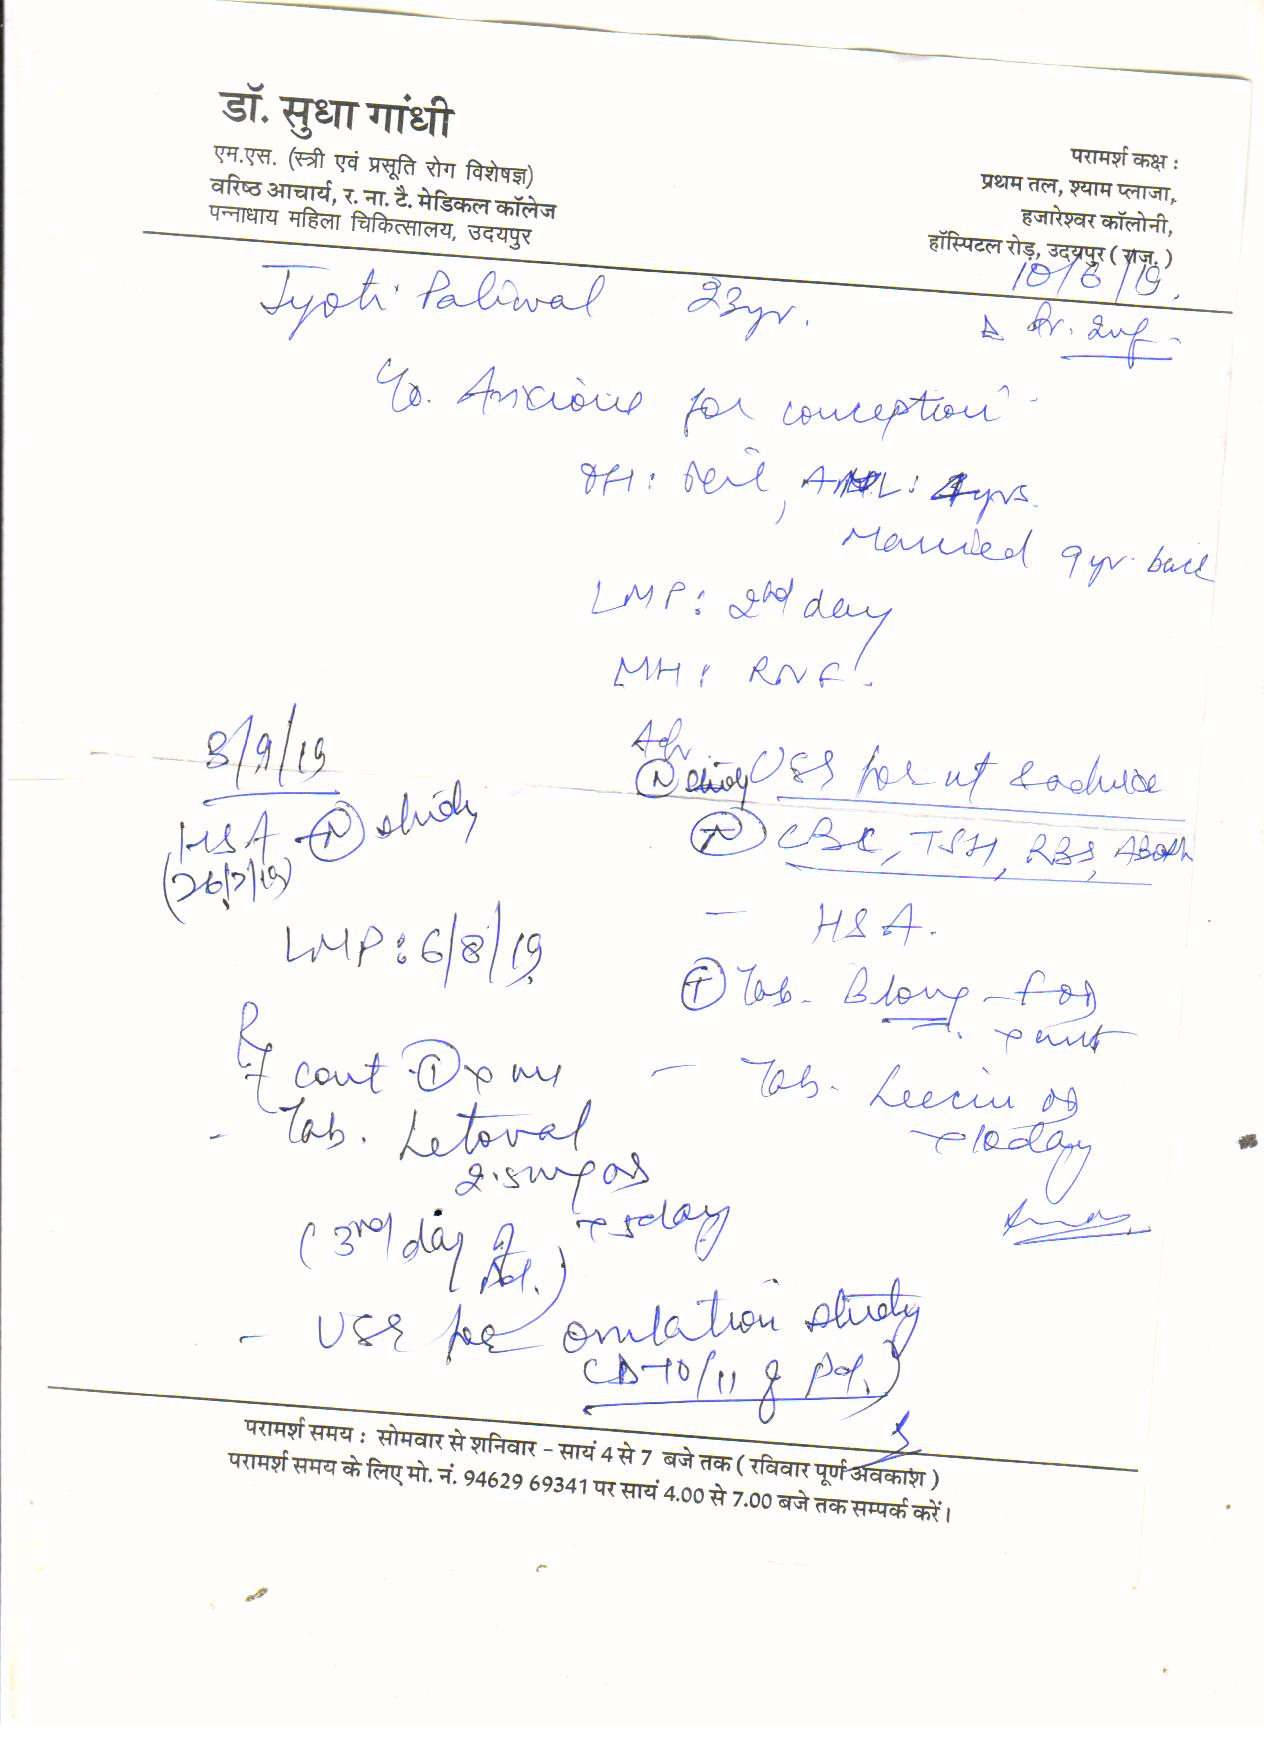 डॉ. सुधा गांधी
एम.एस. (स्त्री एवं प्रसूति रोग विशेषज्ञ)
वरिष्ठ आचार्य, र. ना. टै. मेडिकल कॉलेज
पन्नाधाय महिला चिकित्सालय, उदयपुर
परामर्श कक्ष :
प्रथम तल, श्याम प्लाजा,
हजारेश्वर कॉलोनी,
हॉस्पिटल रोड़, उदयपुर ( राज. )
10/6/19.
Jyoti Paliwal 23yr.
Δ Pr. Inf.
C/o. Anxious for conception
OH : Nil, AML : 4yrs.
Married 9 yr. back
LMP : 2nd day
MH : RNF.
Adv
(N) study USS for ut & adnexa
(N) CBC, TSH, RBS, ABORh
- HSA.
(T) Tab. Blong-F OD
- Tab. Leecin OD
x 10day
3/9/19
HSA - (N) study
(26/7/19)
LMP : 6/8/19
Rx
cont (T) x
- Tab. Letoval
2.5mg OD
x 5day
(3rd day of Pd.)
- USS for ovulation study
CD-10/11 of Pd.
परामर्श समय : सोमवार से शनिवार - सायं 4 से 7 बजे तक ( रविवार पूर्ण अवकाश )
परामर्श समय के लिए मो. नं. 94629 69341 पर सायं 4.00 से 7.00 बजे तक सम्पर्क करें।